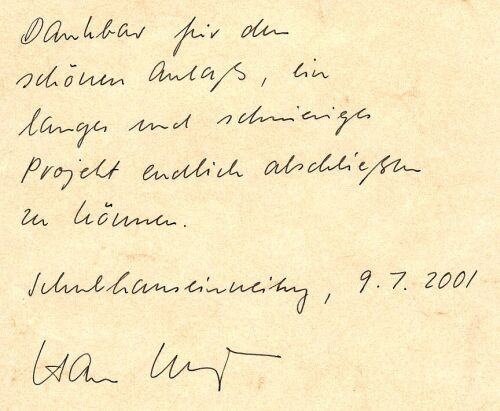 Dankbar für den
schönen Anlaß, ein
langes und schwieriges
Projekt endlich abschließen
zu können.
Schulhauseinweihung, 9.7.2001